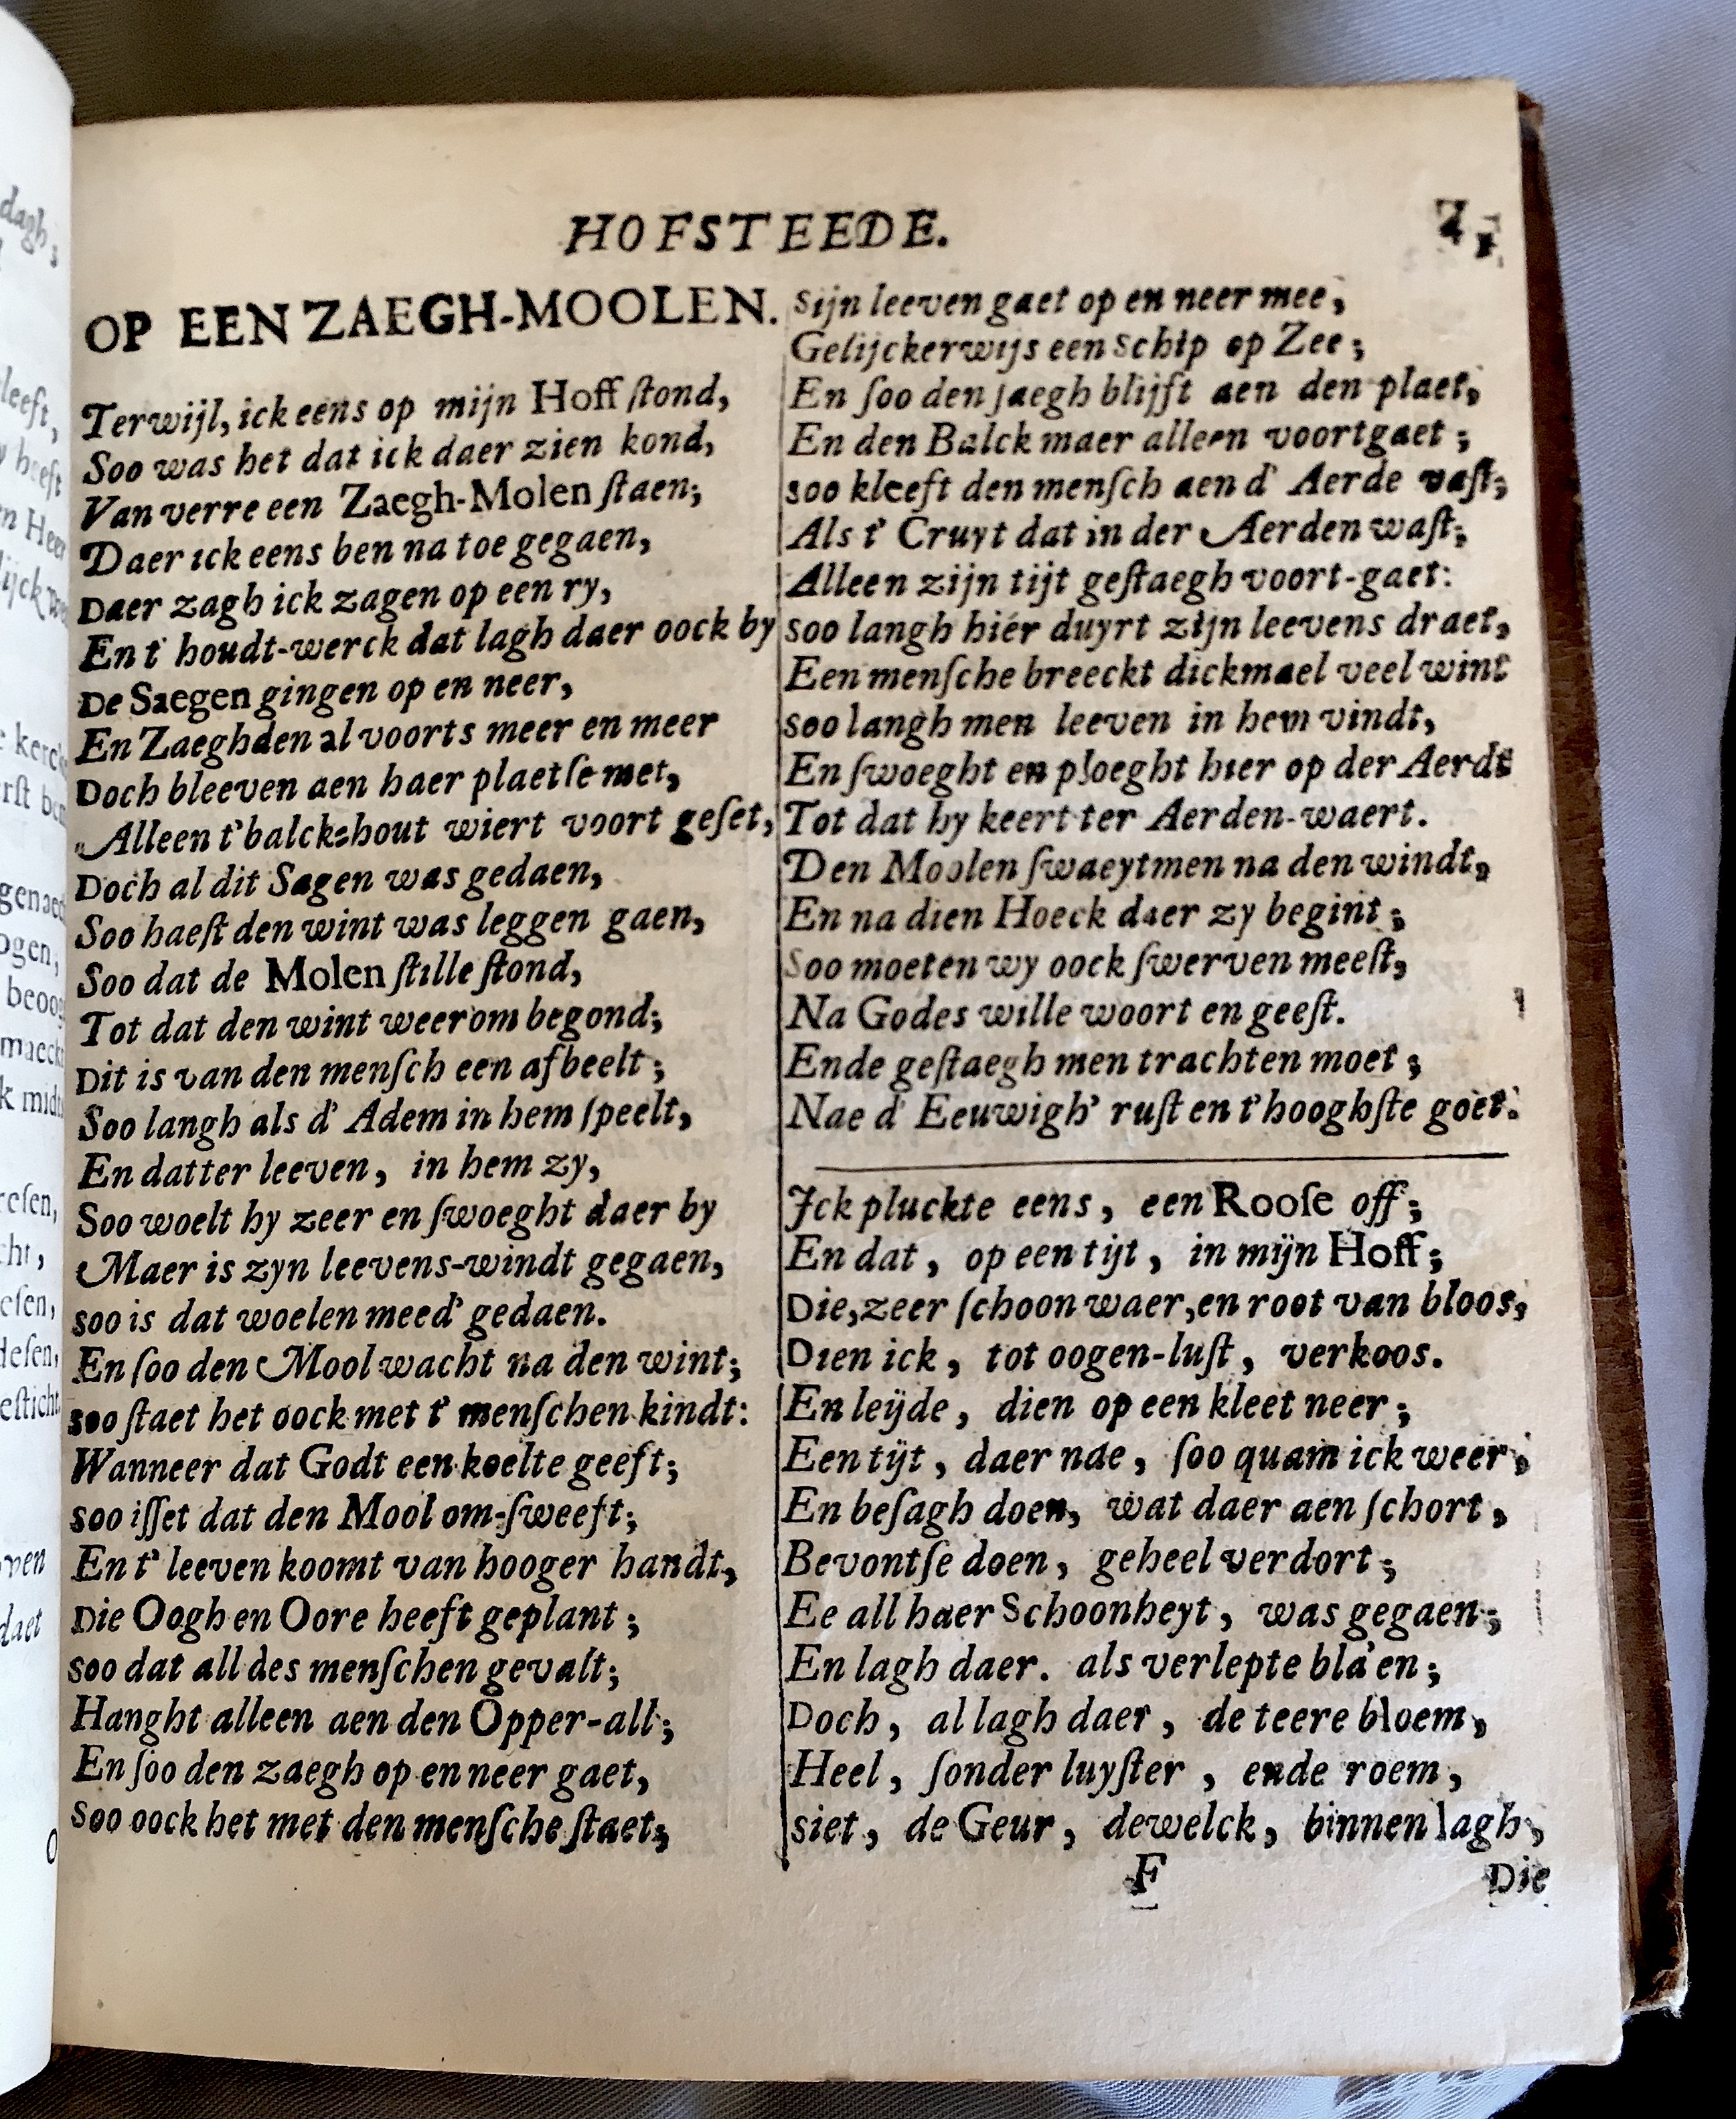 HOFSTEEDE.
OP EEN ZAEGH-MOOLEN.
Terwijl, ick eens op mijn Hoff ſtond,
Soo was het dat ick daer zien kond,
Van verre een Zaegh-Molen ſtaen;
Daer ick eens ben na toe gegaen,
Daer zagh ick zagen op een ry,
En t' houdt-werck dat lagh daer oock by
De Saegen gingen op en neer,
En Zaeghden al voorts meer en meer
Doch bleeven aen haer plaetſe met,
Alleen t' balck-hout wiert voort geſet,
Doch al dit Sagen was gedaen,
Soo haeſt den wint was leggen gaen,
Soo dat de Molen ſtille ſtond,
Tot dat den wint weerom begond;
Dit is van den menſch een afbeelt;
Soo langh als d' Adem in hem ſpeelt,
En datter leeven, in hem zy,
Soo woelt hy zeer en ſwoeght daer by
Maer is zyn leevens-windt gegaen,
soo is dat woelen meed' gedaen.
En ſoo den Mool wacht na den wint;
soo ſtaet het oock met t' menſchen kindt:
Wanneer dat Godt een koelte geeft;
soo iſſet dat den Mool om-ſweeft;
En t' leeven koomt van hooger handt,
Die Oogh en Oore heeft geplant;
soo dat all des menſchen gevalt;
Hanght alleen aen den Opper-all;
En ſoo den zaegh op en neer gaet,
soo oock het met den menſche ſtaet,
sijn leeven gaet op en neer mee,
Gelijckerwijs een schip op Zee;
En ſoo den jaegh blijft aen den plaet,
En den Balck maer alleen voortgaet;
soo kleeft den menſch aen d' Aerde vaſt;
Als t' Cruyt dat in der Aerden waſt;
Alleen zijn tijt geſtaegh voort-gaet:
soo langh hier duyrt zijn leevens draet,
Een menſche breeckt dickmael veel wint
soo langh men leeven in hem vindt,
En ſwoeght en ploeght hier op der Aerdt
Tot dat hy keert ter Aerden-waert.
Den Moolen ſwaeytmen na den windt,
En na dien Hoeck daer zy begint;
Soo moeten wy oock ſwerven meeſt,
Na Godes wille woort en geeſt.
Ende geſtaegh men trachten moet;
Nae d' Eeuwigh' ruſt en t' hooghſte goet.
Ick pluckte eens, een Rooſe off;
En dat, op een tijt, in mijn Hoff;
Die, zeer ſchoon waer, en root van bloos,
Dien ick, tot oogen-luſt, verkoos.
En leijde, dien op een kleet neer;
Een tijt, daer nae, ſoo quam ick weer;
En beſagh doen, wat daer aen ſchort,
Bevontſe doen, geheel verdort;
Ee all haer Schoonheyt, was gegaen;
En lagh daer. als verlepte bla'en;
Doch, al lagh daer, de teere bloem,
Heel, ſonder luyſter, ende roem,
siet, de Geur, dewelck, binnen lagh,
F
Die